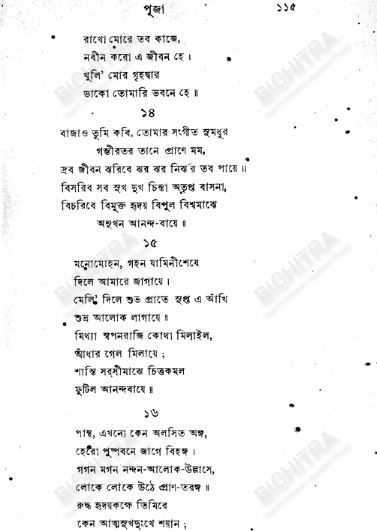 পূজা ১১৫
রাখো মোরে তব কাজে,
নবীন করো এ জীবন হে।
খুলি' মোর গৃহদ্বার
ডাকো তোমারি ভবনে হে॥
১৪
বাজাও তুমি কবি, তোমার সংগীত সুমধুর
গম্ভীরতর তানে প্রাণে মম,
দ্রব জীবন ঝরিবে ঝর ঝর নির্ঝর তব পায়ে॥
বিসরিব সব সুখ দুখ চিন্তা অতৃপ্ত বাসনা,
বিচরিবে বিমুক্ত হৃদয় বিপুল বিশ্বমাঝে
অনুখন আনন্দ-বায়ে॥
১৫
মনোমোহন, গহন যামিনীশেষে
দিলে আমারে জাগায়ে।
মেলি' দিলে শুভ প্রাতে সুপ্ত এ আঁখি
শুভ্র আলোক লাগায়ে॥
মিথ্যা স্বপনরাজি কোথা মিলাইল,
আঁধার গেল মিলায়ে;
শান্তি সরসীমাঝে চিত্তকমল
ফুটিল আনন্দবায়ে॥
১৬
পান্থ, এখনো কেন অলসিত অঙ্গ,
হেরো পুষ্পবনে জাগে বিহঙ্গ।
গগন মগন নন্দন-আলোক-উল্লাসে,
লোকে লোকে উঠে প্রাণ-তরঙ্গ॥
রুদ্ধ হৃদয়কক্ষে তিমিরে
কেন আত্মসুখদুঃখে শয়ান;
BICHITRA
BICHITRA
BICHITRA
BICHITRA
BICHITRA
BICHITRA